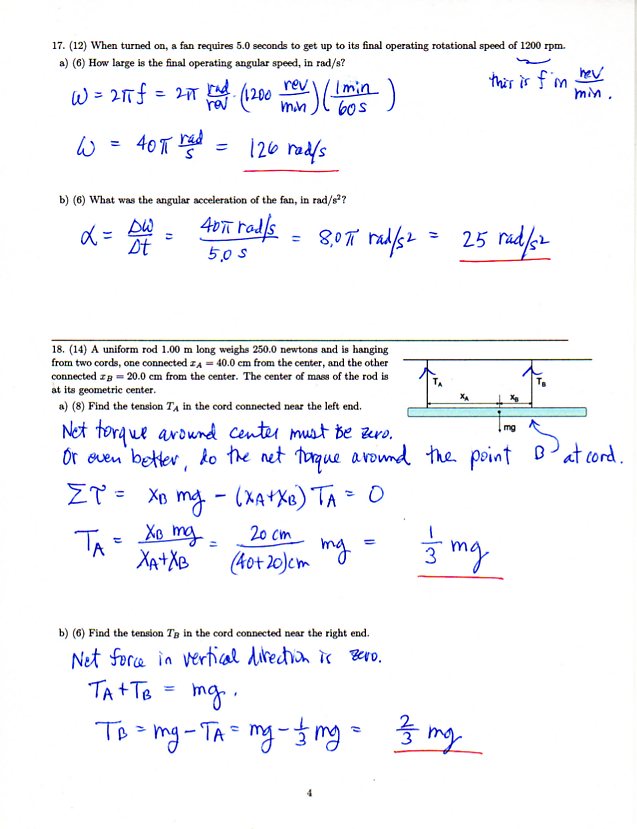 17. (12) When turned on, a fan requires 5.0 seconds to get up to its final operating rotational speed of 1200 rpm.
a) (6) How large is the final operating angular speed, in rad/s?
this is f in rev/min.
ω = 2πf = 2π rad/rev · (1200 rev/min)(1min/60s)
ω = 40π rad/s = 126 rad/s
b) (6) What was the angular acceleration of the fan, in rad/s²?
α = Δω/Δt = 40π rad/s / 5.0 s = 8.0π rad/s² = 25 rad/s²
18. (14) A uniform rod 1.00 m long weighs 250.0 newtons and is hanging
from two cords, one connected xA = 40.0 cm from the center, and the other
connected xB = 20.0 cm from the center. The center of mass of the rod is
at its geometric center.
TA
TB
xA
xB
mg
a) (8) Find the tension TA in the cord connected near the left end.
Net torque around center must be zero.
Or even better, do the net torque around the point B at cord.
Στ = xB mg - (xA+xB) TA = 0
TA = xB mg / xA+xB = 20 cm / (40+20)cm mg = 1/3 mg
b) (6) Find the tension TB in the cord connected near the right end.
Net force in vertical direction is zero.
TA + TB = mg.
TB = mg - TA = mg - 1/3 mg = 2/3 mg
4